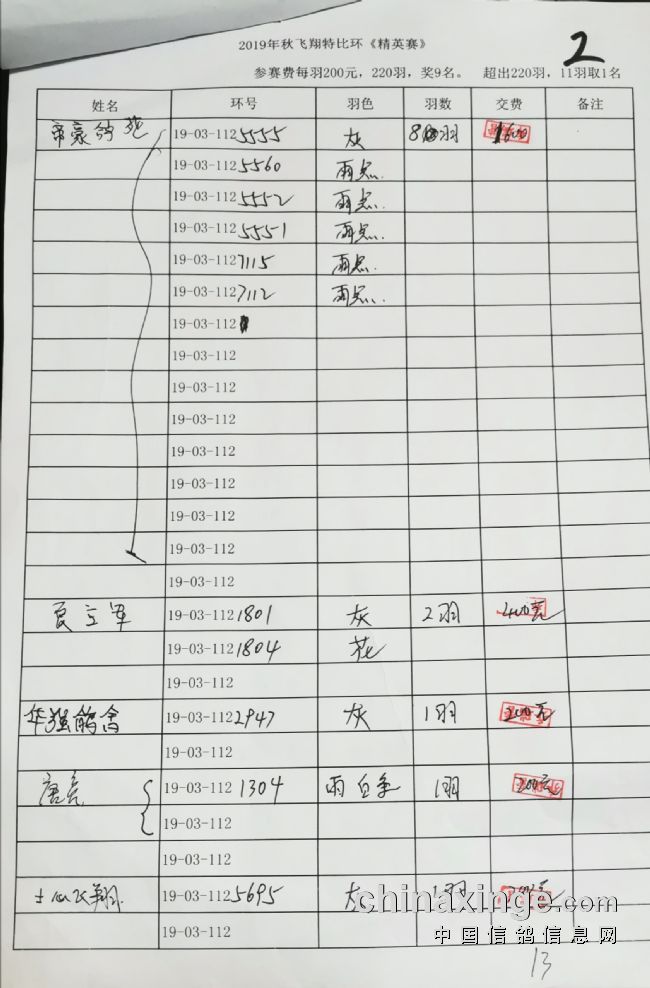 2019年秋飞翔特比环《精英赛》
2
参赛费每羽200元，220羽，奖9名。 超出220羽，11羽取1名
姓名 环号 羽色 羽数 交费 备注
帝豪鸽苑 19-03-1125555 灰 8羽
19-03-1125560 雨点.
19-03-1125552 雨点.
19-03-1125551 雨点.
19-03-1127115 雨点.
19-03-1127112 雨点.
19-03-112
19-03-112
19-03-112
19-03-112
19-03-112
19-03-112
19-03-112
19-03-112
19-03-112
夏立军 19-03-1121801 灰 2羽 400元
19-03-1121804 花
19-03-112
华强鸽舍 19-03-1122947 灰 1羽 200元
19-03-112
唐亮 19-03-1121304 雨白条 1羽 200元
19-03-112
19-03-112
飞翔. 19-03-1125695 灰 1羽 200元
19-03-112
chinaxinge.com
中国信鸽信息网
13